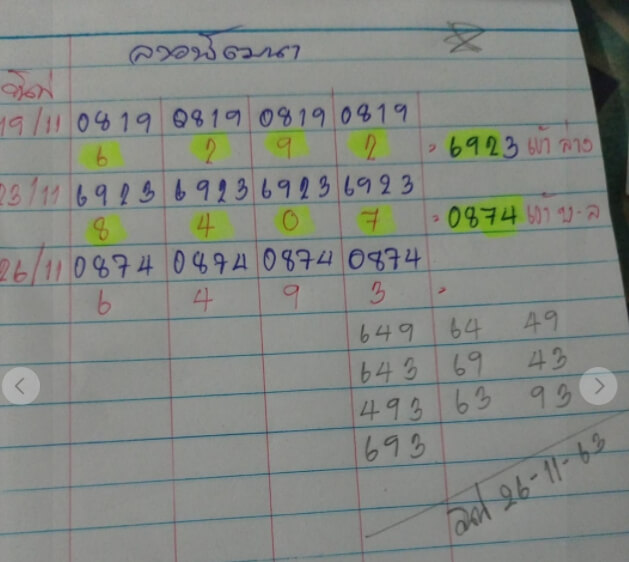 ลาวพัฒนา
วันที่
19/11 0819 0819 0819 0819
6 2 9 2 = 6923 เข้าล่าง
23/11 6923 6923 6923 6923
8 4 0 7 = 0874 เข้า บ-ล
26/11 0874 0874 0874 0874
6 4 9 3 =
649 64 49
643 69 43
493 63 93
693
26-11-63